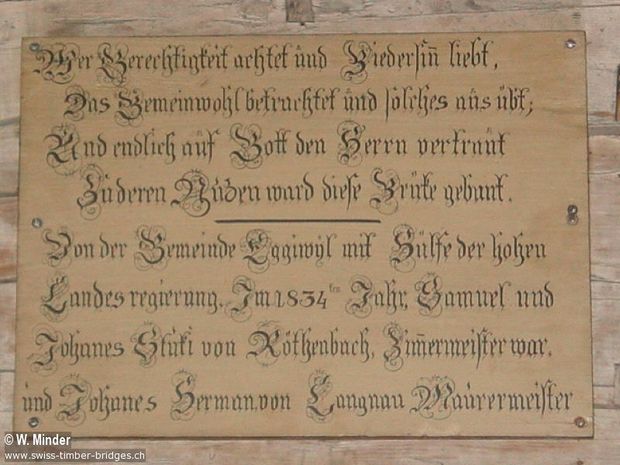 Wer Gerechtigkeit achtet und Biedersin̅ liebt,
Das Gemeinwohl betrachtet und solches aus übt;
Und endlich auf Gott den Herrn vertraut
Zu deren Nuzen ward diese Brüke gebaut.
Von der Gemeinde Eggiwyl mit Hülfe der hohen
Landesregierung. Im 1834ten Jahr, Samuel und
Johanes Stuki von Röthenbach, Zim̅ermeister war,
und Johanes Herman von Langnau Maurermeister
© W. Minder
www.swiss-timber-bridges.ch